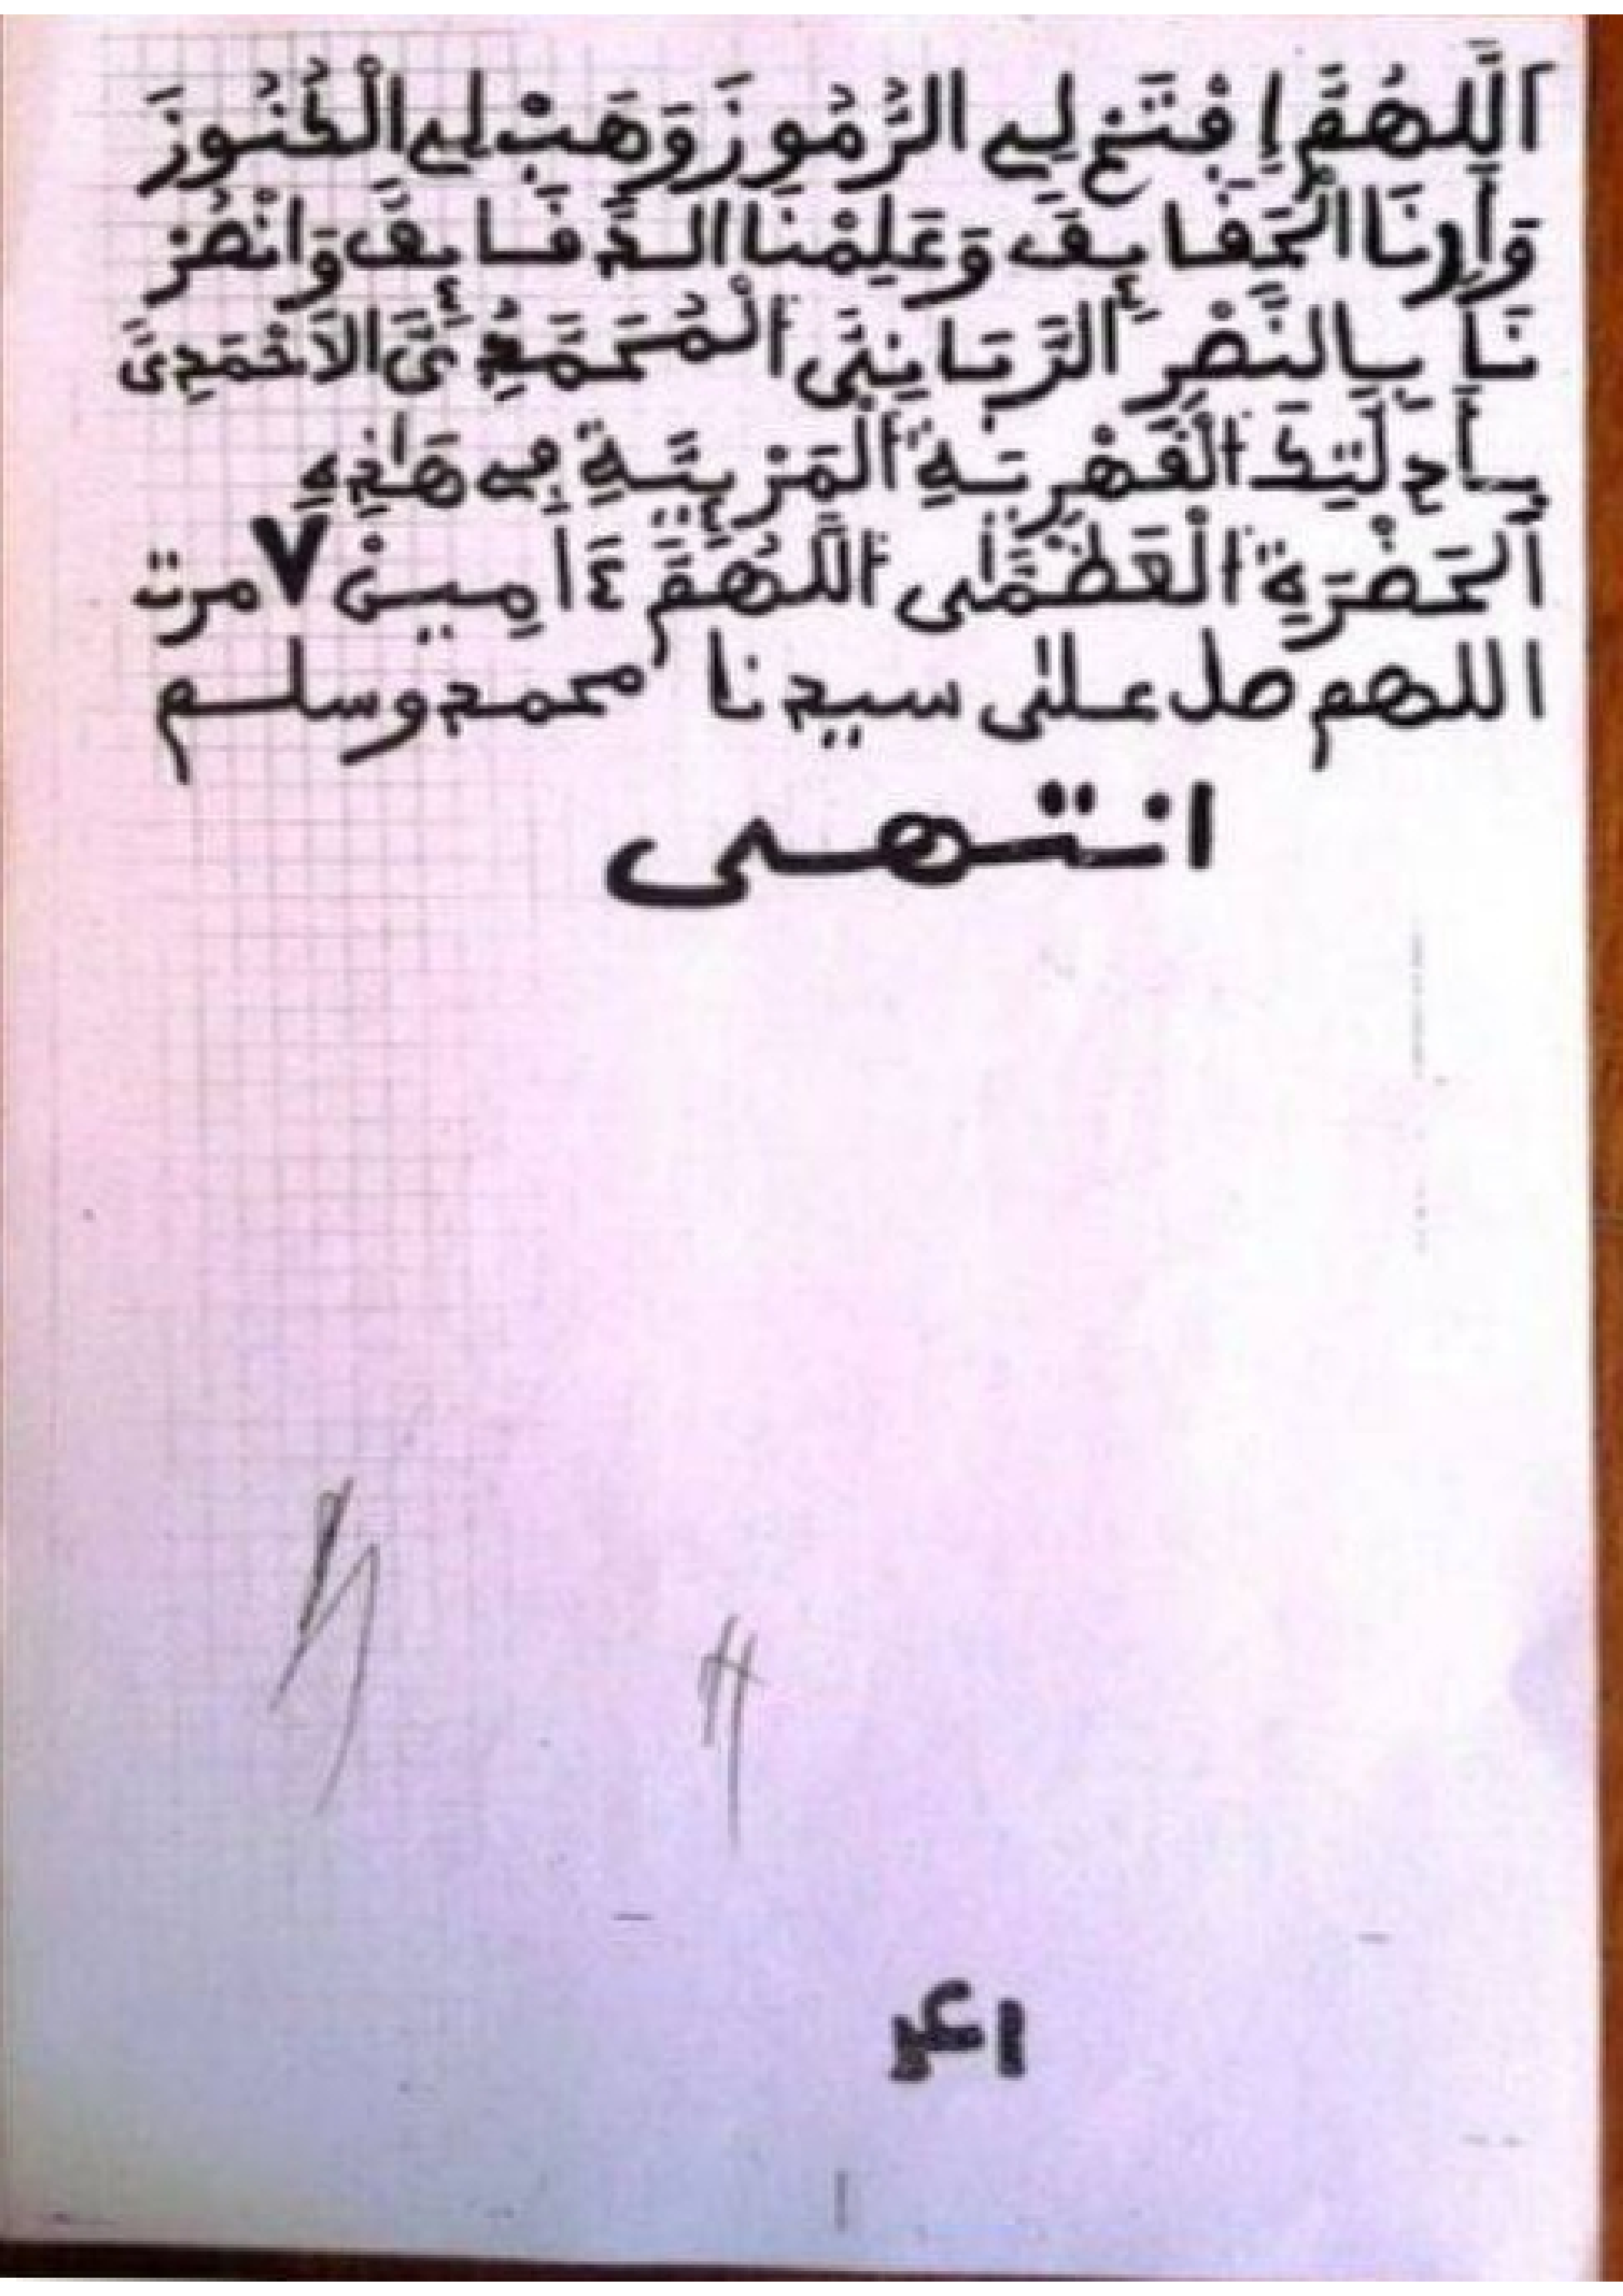 اَللَّهُمَّ إِفْتَحْ لِي الرُّمُوزَ وَهَبْ لِي الْكُنُوزَ
وَأَرِنَا الْحَقَايِقَ وَعَلِمْنَا الدَّقَايِقَ وَانْصُرْ
نَا بِالنَّصْرِ الرَّبَّانِيِّ الْمُحَمَّدِيِّ الاَحْمَدِيِّ
الْقَهْرِيَّةِ الْمَزِيَّةِ فِي هَاذِهِ
اَلْحَضْرَةِ الْعَظْمَى اللَّهُمَّ ءَامِينْ ٧ مرت
اللهم صل على سيدنا محمد وسلم
انتهى